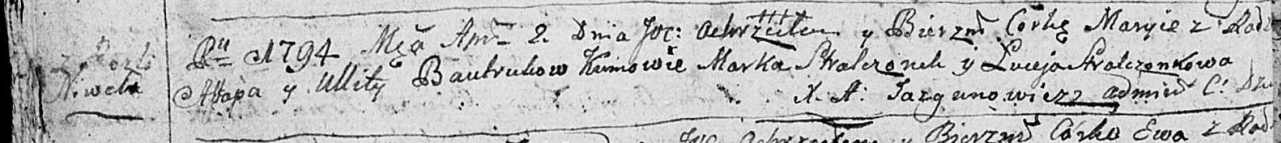 Ru 1794 Mca Apr 2. Dnia Joc: ochrzciłem y Bierzm Córkę Maryię z Rodz
Ahapa y Ullity Bautrukow Kumowie Marka Stralczonek y Lucyja Stralczonkowa
X. A: Jazgunowicz admin C:
Joc ochrzciłem y Bierzm Córkę Ewa z Rodz